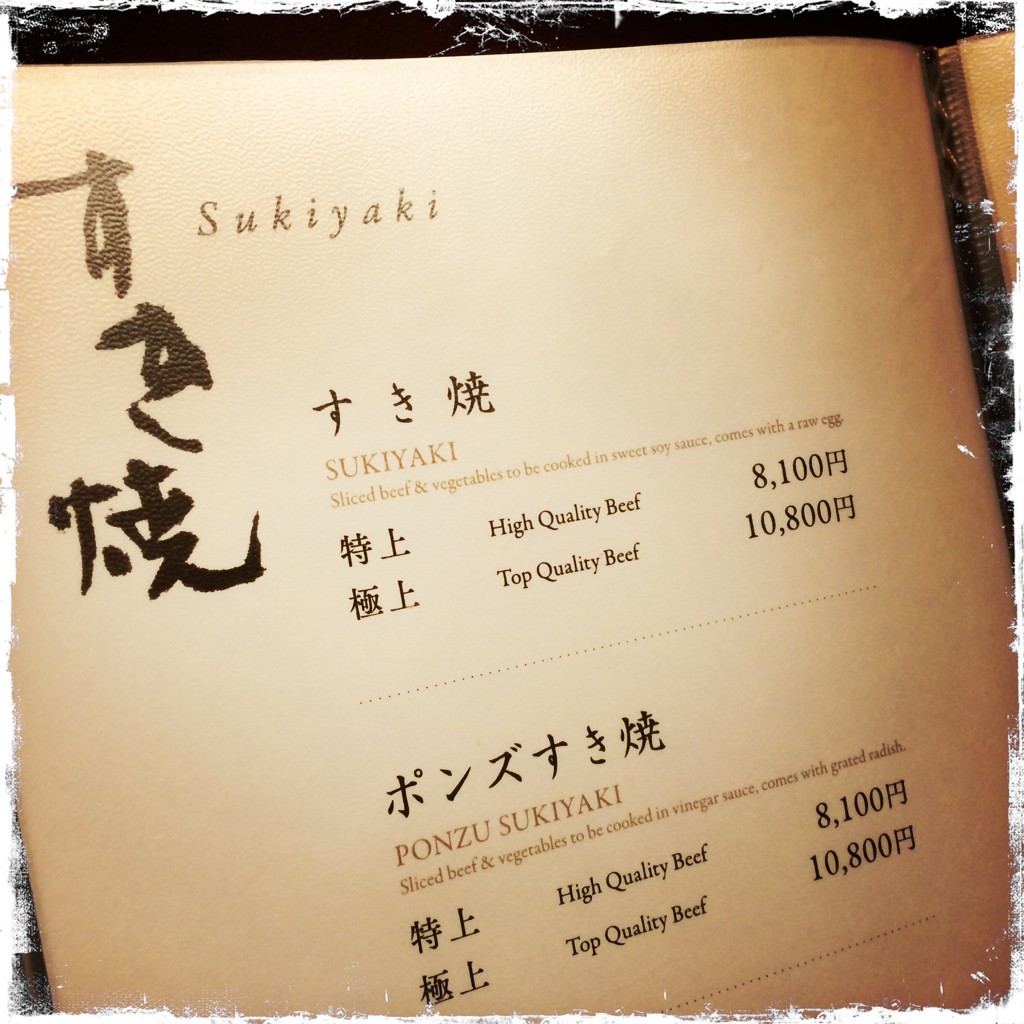 すき焼
Sukiyaki
すき焼
SUKIYAKI
Sliced beef & vegetables to be cooked in sweet soy sauce, comes with a raw egg.
特上 High Quality Beef 8,100円
極上 Top Quality Beef 10,800円
ポンズすき焼
PONZU SUKIYAKI
Sliced beef & vegetables to be cooked in vinegar sauce, comes with grated radish.
特上 High Quality Beef 8,100円
極上 Top Quality Beef 10,800円